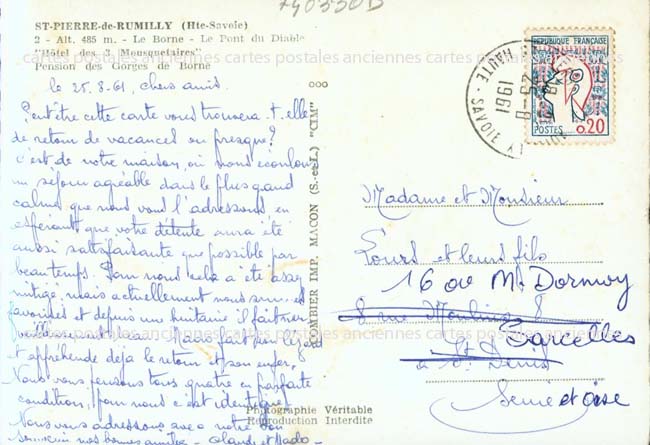 740330D
ST-PIERRE-de-RUMILLY (Hte-Savoie)
2 - Alt. 485 m. - Le Borne - Le Pont du Diable
"Hôtel des 3 Mousquetaires"
Pension des Gorges de Borne
cartes postales anciennes cartes postales anciennes cartes postales anciennes
le 25.8.61, chers amis.
Peut être cette carte vous trouvera-t-elle
de retour de vacances ou presque?
C'est de notre maison, où nous écoulons
un séjour agréable dans le plus grand
calme que nous vous l'adressons, en
espérant que votre détente aura été
aussi satisfaisante que possible par
beau temps. Pour nous cela a été assez
mitigé, mais actuellement nous sommes
favorisés et depuis une huitaine il fait
appréhende déjà le retour et son enfer.
Nous vous pensons tous quatre en parfaite
condition, pour nous c'est identique.
Nous vous adressons avec notre bon
souvenir nos bonnes amitiés - Claude et Mado -
COMBIER IMP. MACON (S.-et-L.) "CIM"
Photographie Véritable
Reproduction Interdite
REPUBLIQUE FRANCAISE
POSTES 0,20
HAUTE - SAVOIE
25-8
1961
Madame et Monsieur
et leurs fils
16 av M. Dormoy
8 rue Moulins
Sarcelles
à St. Denis
Seine et Oise
cartes postales anciennes cartes postales anciennes cartes postales anciennes